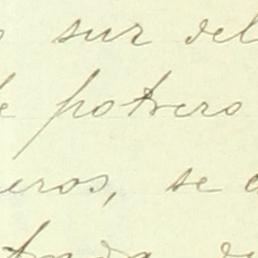 sur del
potrero
eros, se